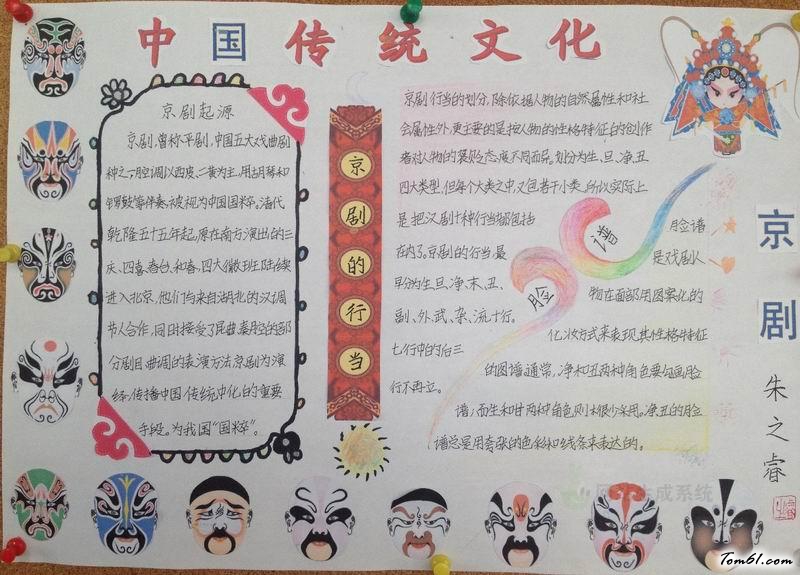 中国传统文化
京剧起源
京剧,曾称平剧,中国五大戏曲剧
种之一,腔调以西皮、二黄为主,用胡琴和
锣鼓等伴奏,被视为中国国粹。清代
乾隆五十五年起,原在南方演出的三
庆、四喜、春台、和春,四大徽班陆续
进入北京,他们与来自湖北的汉调
艺人合作,同时接受了昆曲秦腔的部
分剧目曲调的表演方法京剧为演
经,传播中国传统文化的重要
手段。为我国“国粹”。
京剧的行当
京剧行当的划分,除依据人物的自然属性和社
会属性外,更主要的是按人物的性格特征的创作
者对人物的褒贬态度不同而异,划分为生、旦、净、丑
四大类型,但每个大类之中,又包若干小类,所以实际上
是把汉剧十种行当都包括
在内了。京剧的行当,最
早分为生、旦、净、末、丑、
副、外、武、杂、流十行。
七行中的后三
行不再立。
脸谱
脸谱
是戏剧人
物在面部用图案化的
化妆方式来表现其性格特征
的图谱通常,净和丑两种角色要勾画脸
谱;而生和旦两种角色则很少采用。净丑的脸
谱总是用夸张的色彩和线条来表达的。
京剧
朱之睿
Tom61.com